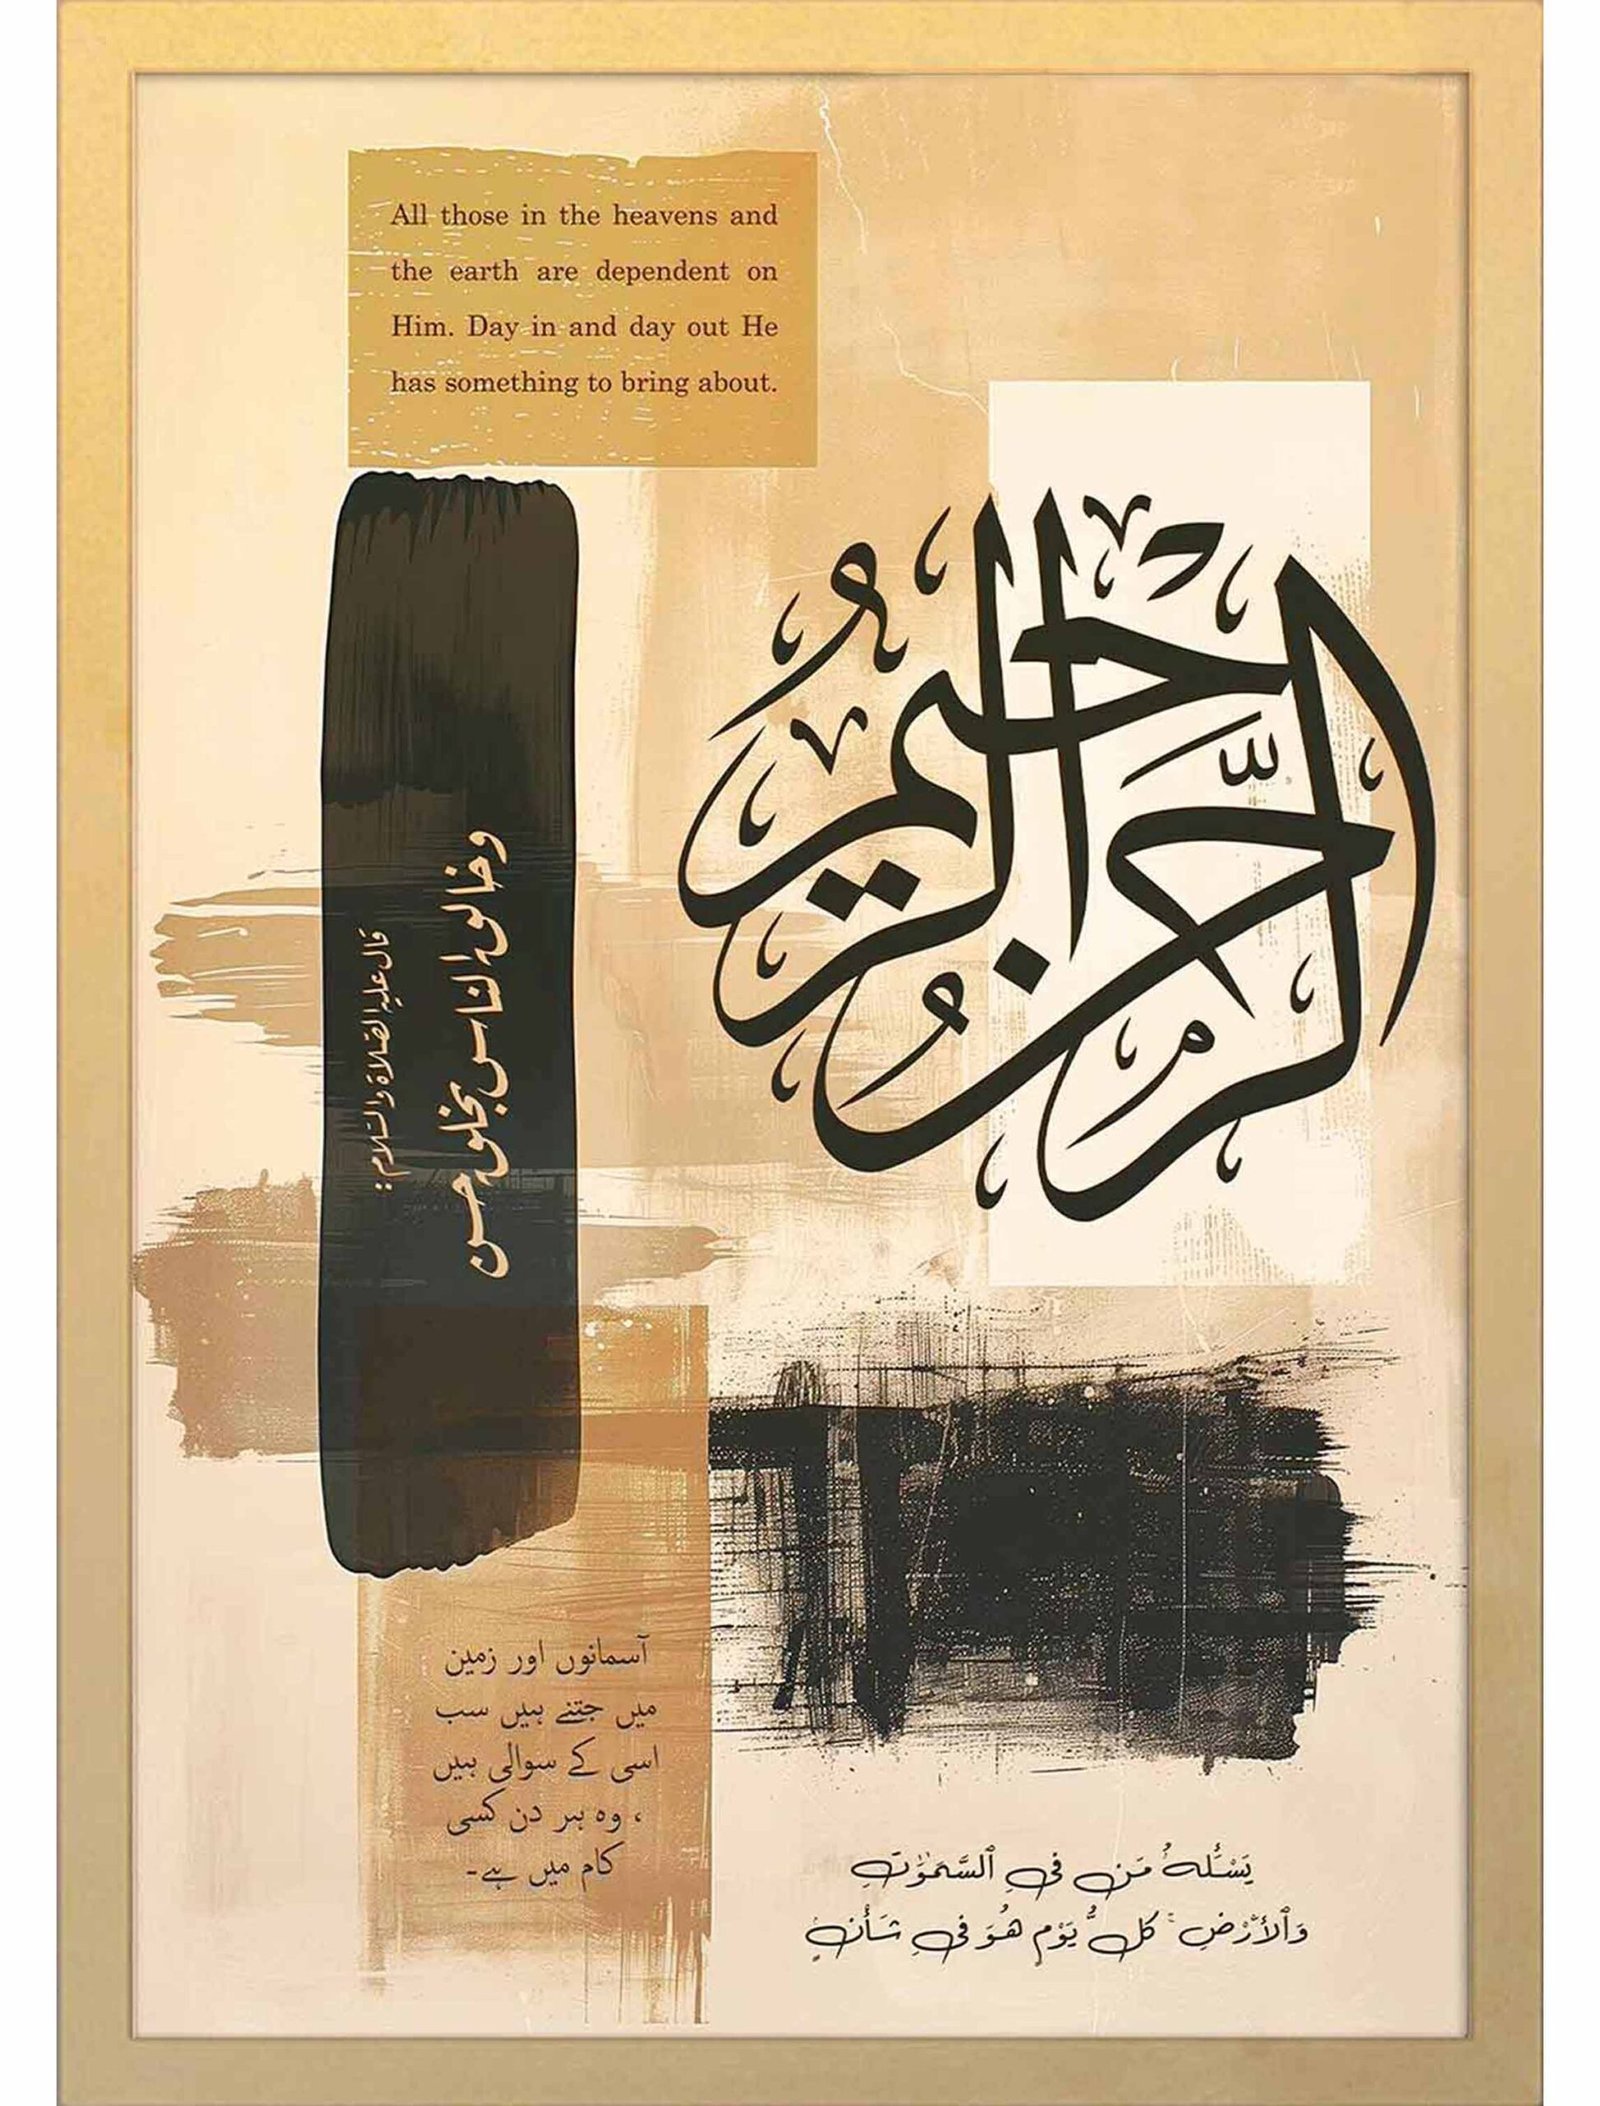 All those in the heavens and
the earth are dependent on
Him. Day in and day out He
has something to bring about.
الرَّحْمٰنُ الرَّحِيمُ
قال عليه الصّلاة والسّلام:
وخالق الناس بخلق حسن
آسمانوں اور زمین
میں جتنے ہیں سب
اسی کے سوالی ہیں
، وہ ہر دن کسی
کام میں ہے۔
يَسْـَٔلُهُۥ مَن فِى ٱلسَّمَـٰوَٰتِ
وَٱلْأَرْضِ ۚ كُلَّ يَوْمٍ هُوَ فِى شَأْنٍ